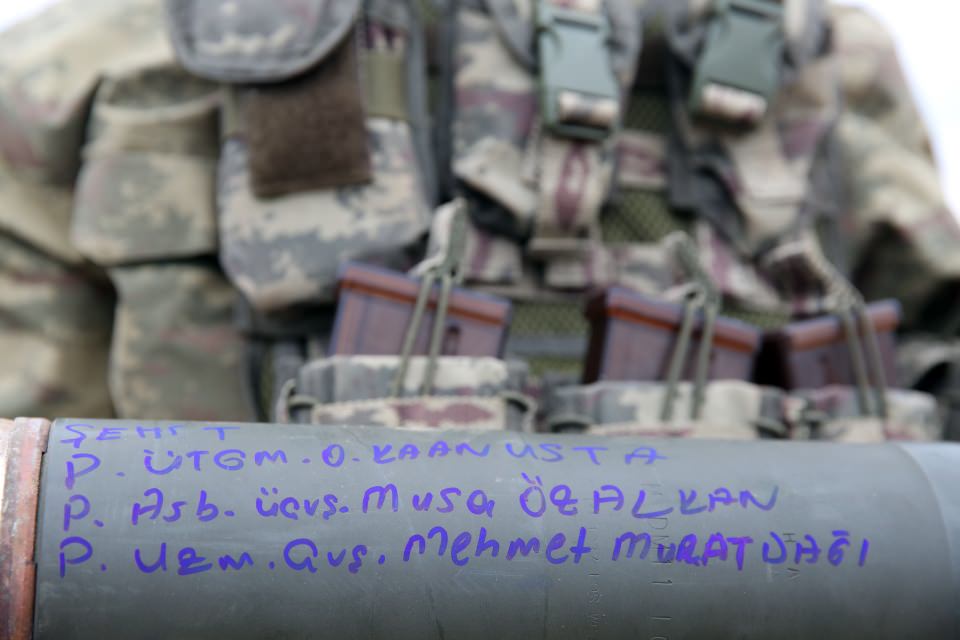 ŞEHİT
P. ÜTGM. O. KAAN USTA
P. Asb. üçvş. Musa ÖZALKAN
P. Uzm. Çvş. Mehmet MURATDAĞI